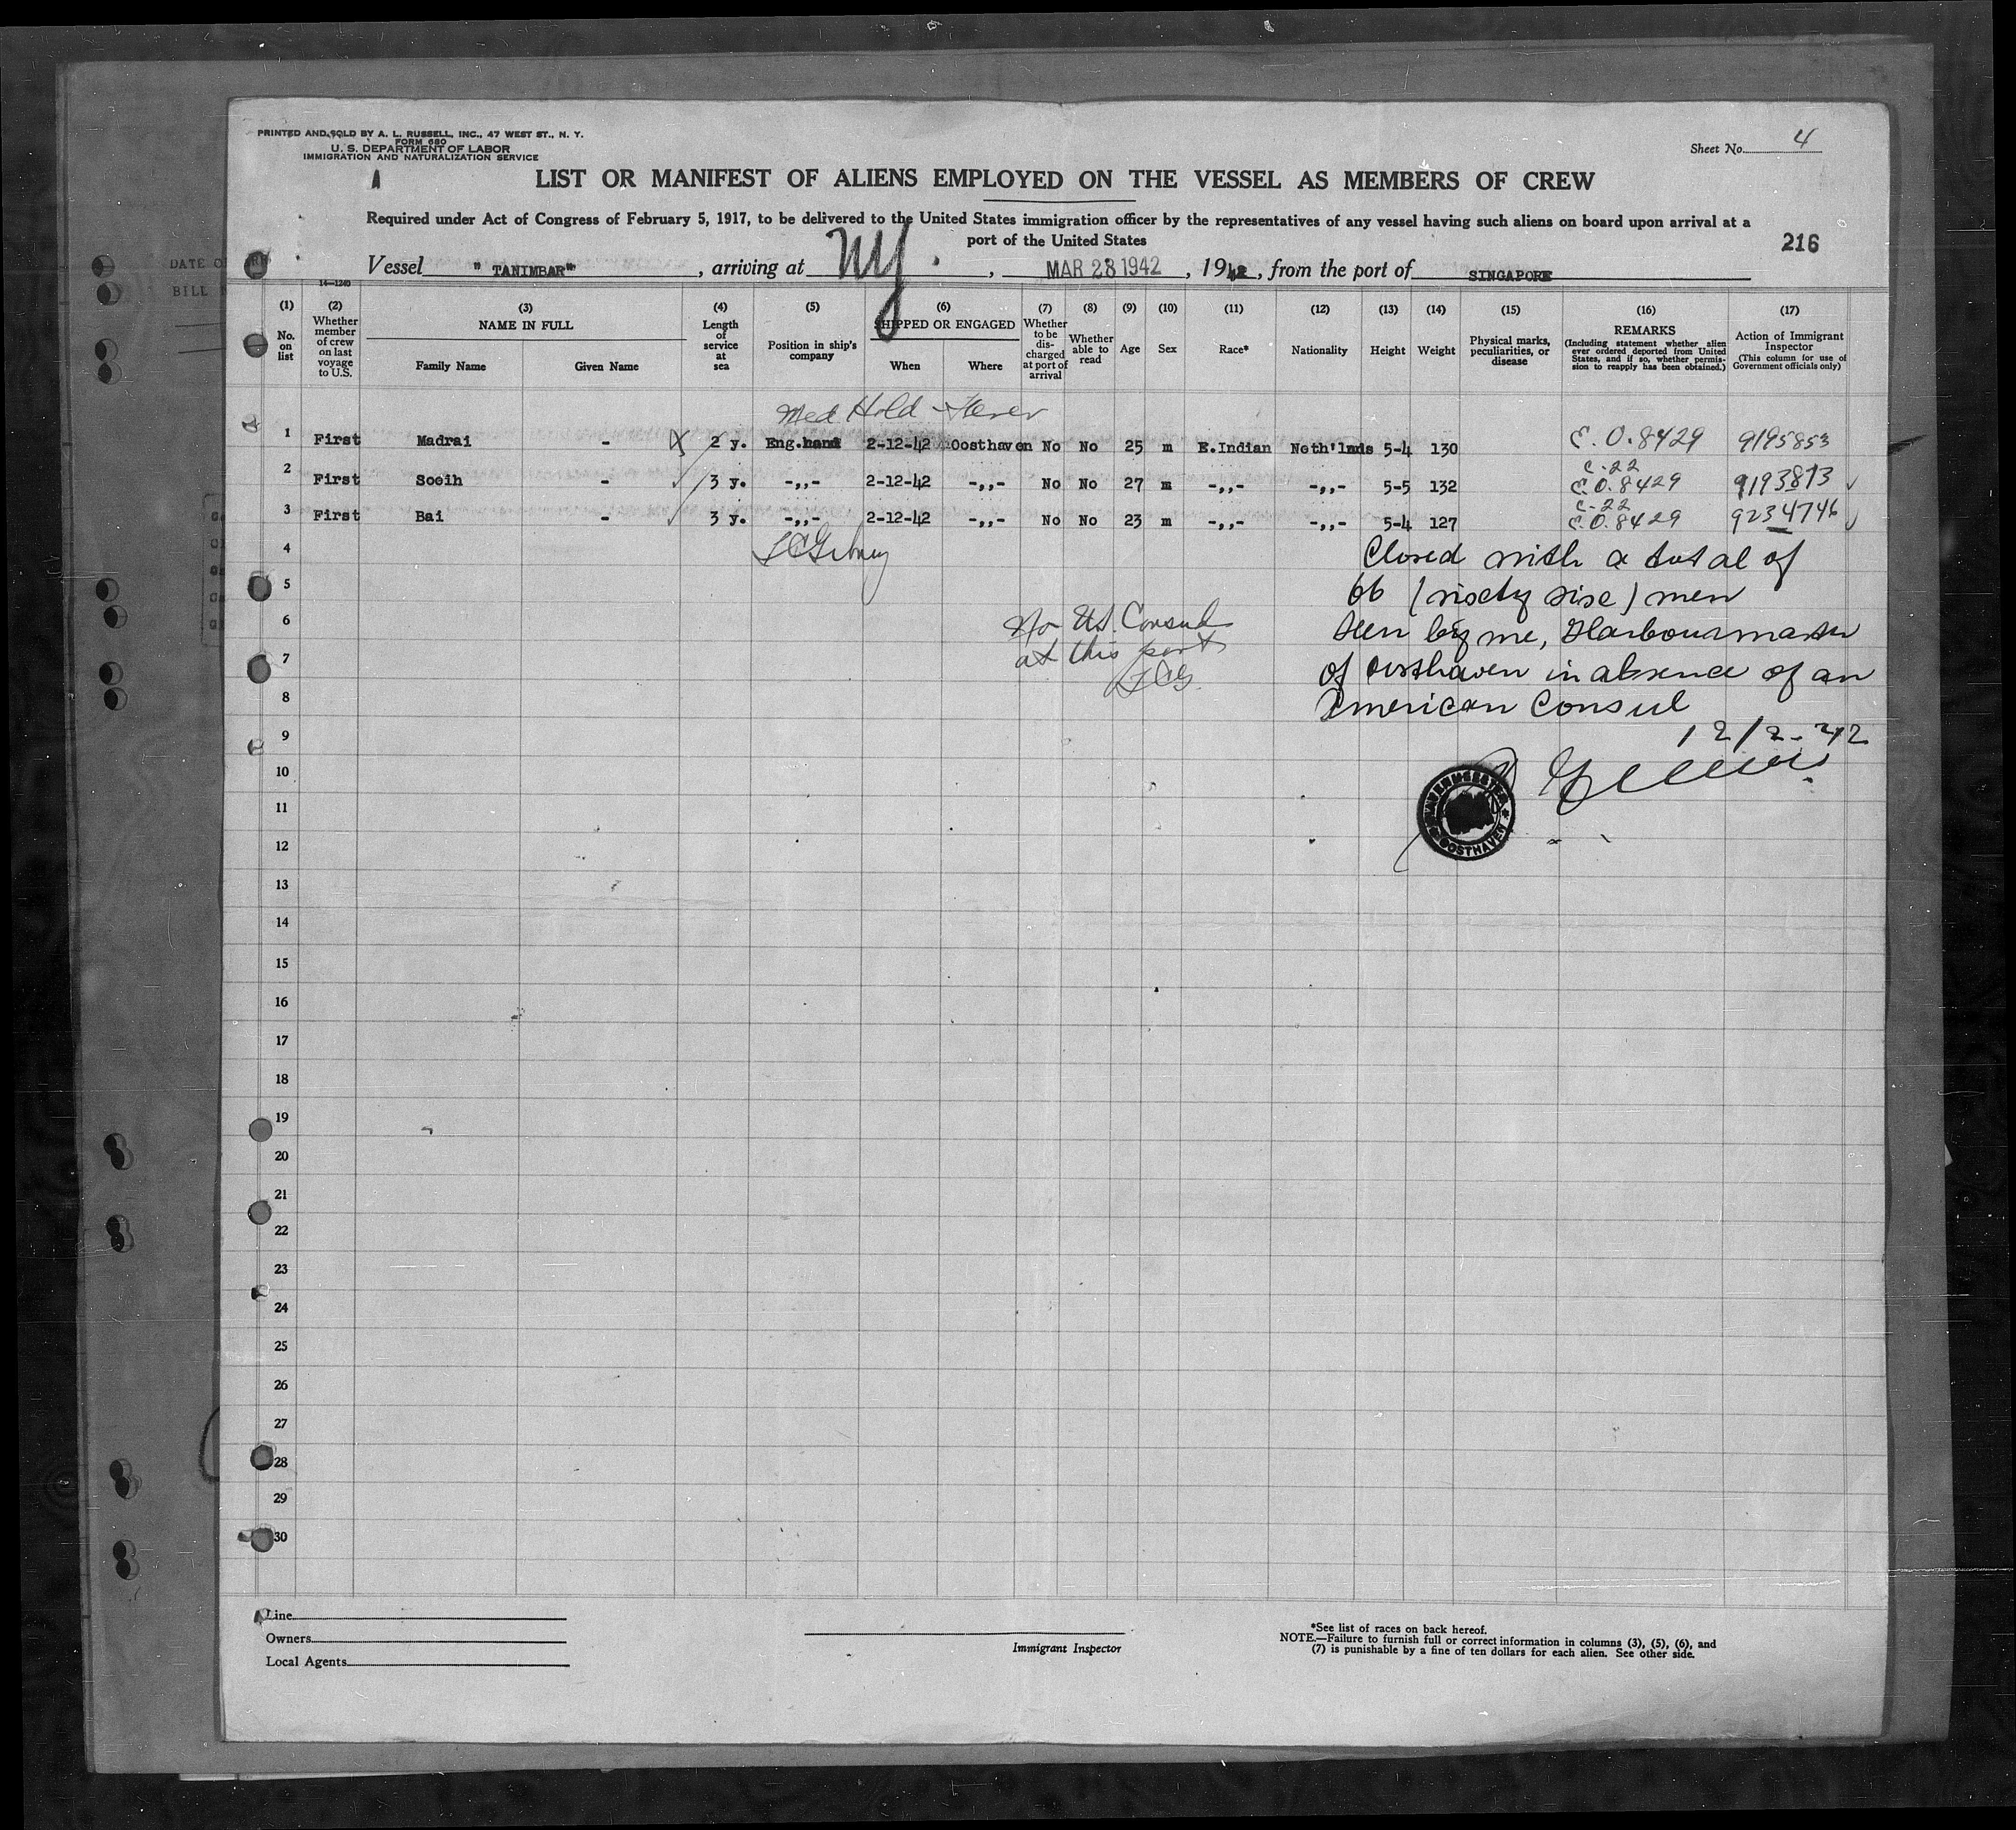 PRINTED AND SOLD BY A. L. RUSSELL, INC., 47 WEST ST., N. Y.
FORM 680
U. S. DEPARTMENT OF LABOR
IMMIGRATION AND NATURALIZATION SERVICE
Sheet No. 4
LIST OR MANIFEST OF ALIENS EMPLOYED ON THE VESSEL AS MEMBERS OF CREW
Required under Act of Congress of February 5, 1917, to be delivered to the United States immigration officer by the representatives of any vessel having such aliens on board upon arrival at a
port of the United States
216
Vessel " TANIMBAR" , arriving at NY. , MAR 28 1942 , 1942 , from the port of SINGAPORE
14—1240
(1) (2) (3) (4) (5) (6) (7) (8) (9) (10) (11) (12) (13) (14) (15) (16) (17)
No. on list
Whether member of crew on last voyage to U.S.
NAME IN FULL
Family Name Given Name
Length of service at sea
Position in ship's company
SHIPPED OR ENGAGED
When Where
Whether to be discharged at port of arrival
Whether able to read
Age
Sex
Race*
Nationality
Height
Weight
Physical marks, peculiarities, or disease
REMARKS
(Including statement whether alien ever ordered deported from United States, and if so, whether permission to reapply has been obtained.)
Action of Immigrant Inspector
(This column for use of Government officials only)
Med Hold - Fever
1 First Madrai - 2 y. Eng.hand 2-12-42 Oosthaven No No 25 m E.Indian Neth'lnds 5-4 130 E.O.8429 9195853
C-22
2 First Soeih - 3 y. -,,- 2-12-42 -,,- No No 27 m -,,- -,,- 5-5 132 E.O.8429 9193813
C-22
3 First Bai - 3 y. -,,- 2-12-42 -,,- No No 23 m -,,- -,,- 5-4 127 E.O.8429 9234746
4
Closed with a total of
5
66 ( ) men
6
No U.S. Consul
Seen by me, Harbourmaster
7
at this port
of Oosthaven in absence of an
8
American Consul
9
12/2-42
10
11
HAVENMEESTER OOSTHAVEN
12
13
14
15
16
17
18
19
20
21
22
23
24
25
26
27
28
29
30
Line
Owners
Local Agents
Immigrant Inspector
*See list of races on back hereof.
NOTE.—Failure to furnish full or correct information in columns (3), (5), (6), and
(7) is punishable by a fine of ten dollars for each alien. See other side.
DATE O
BILL